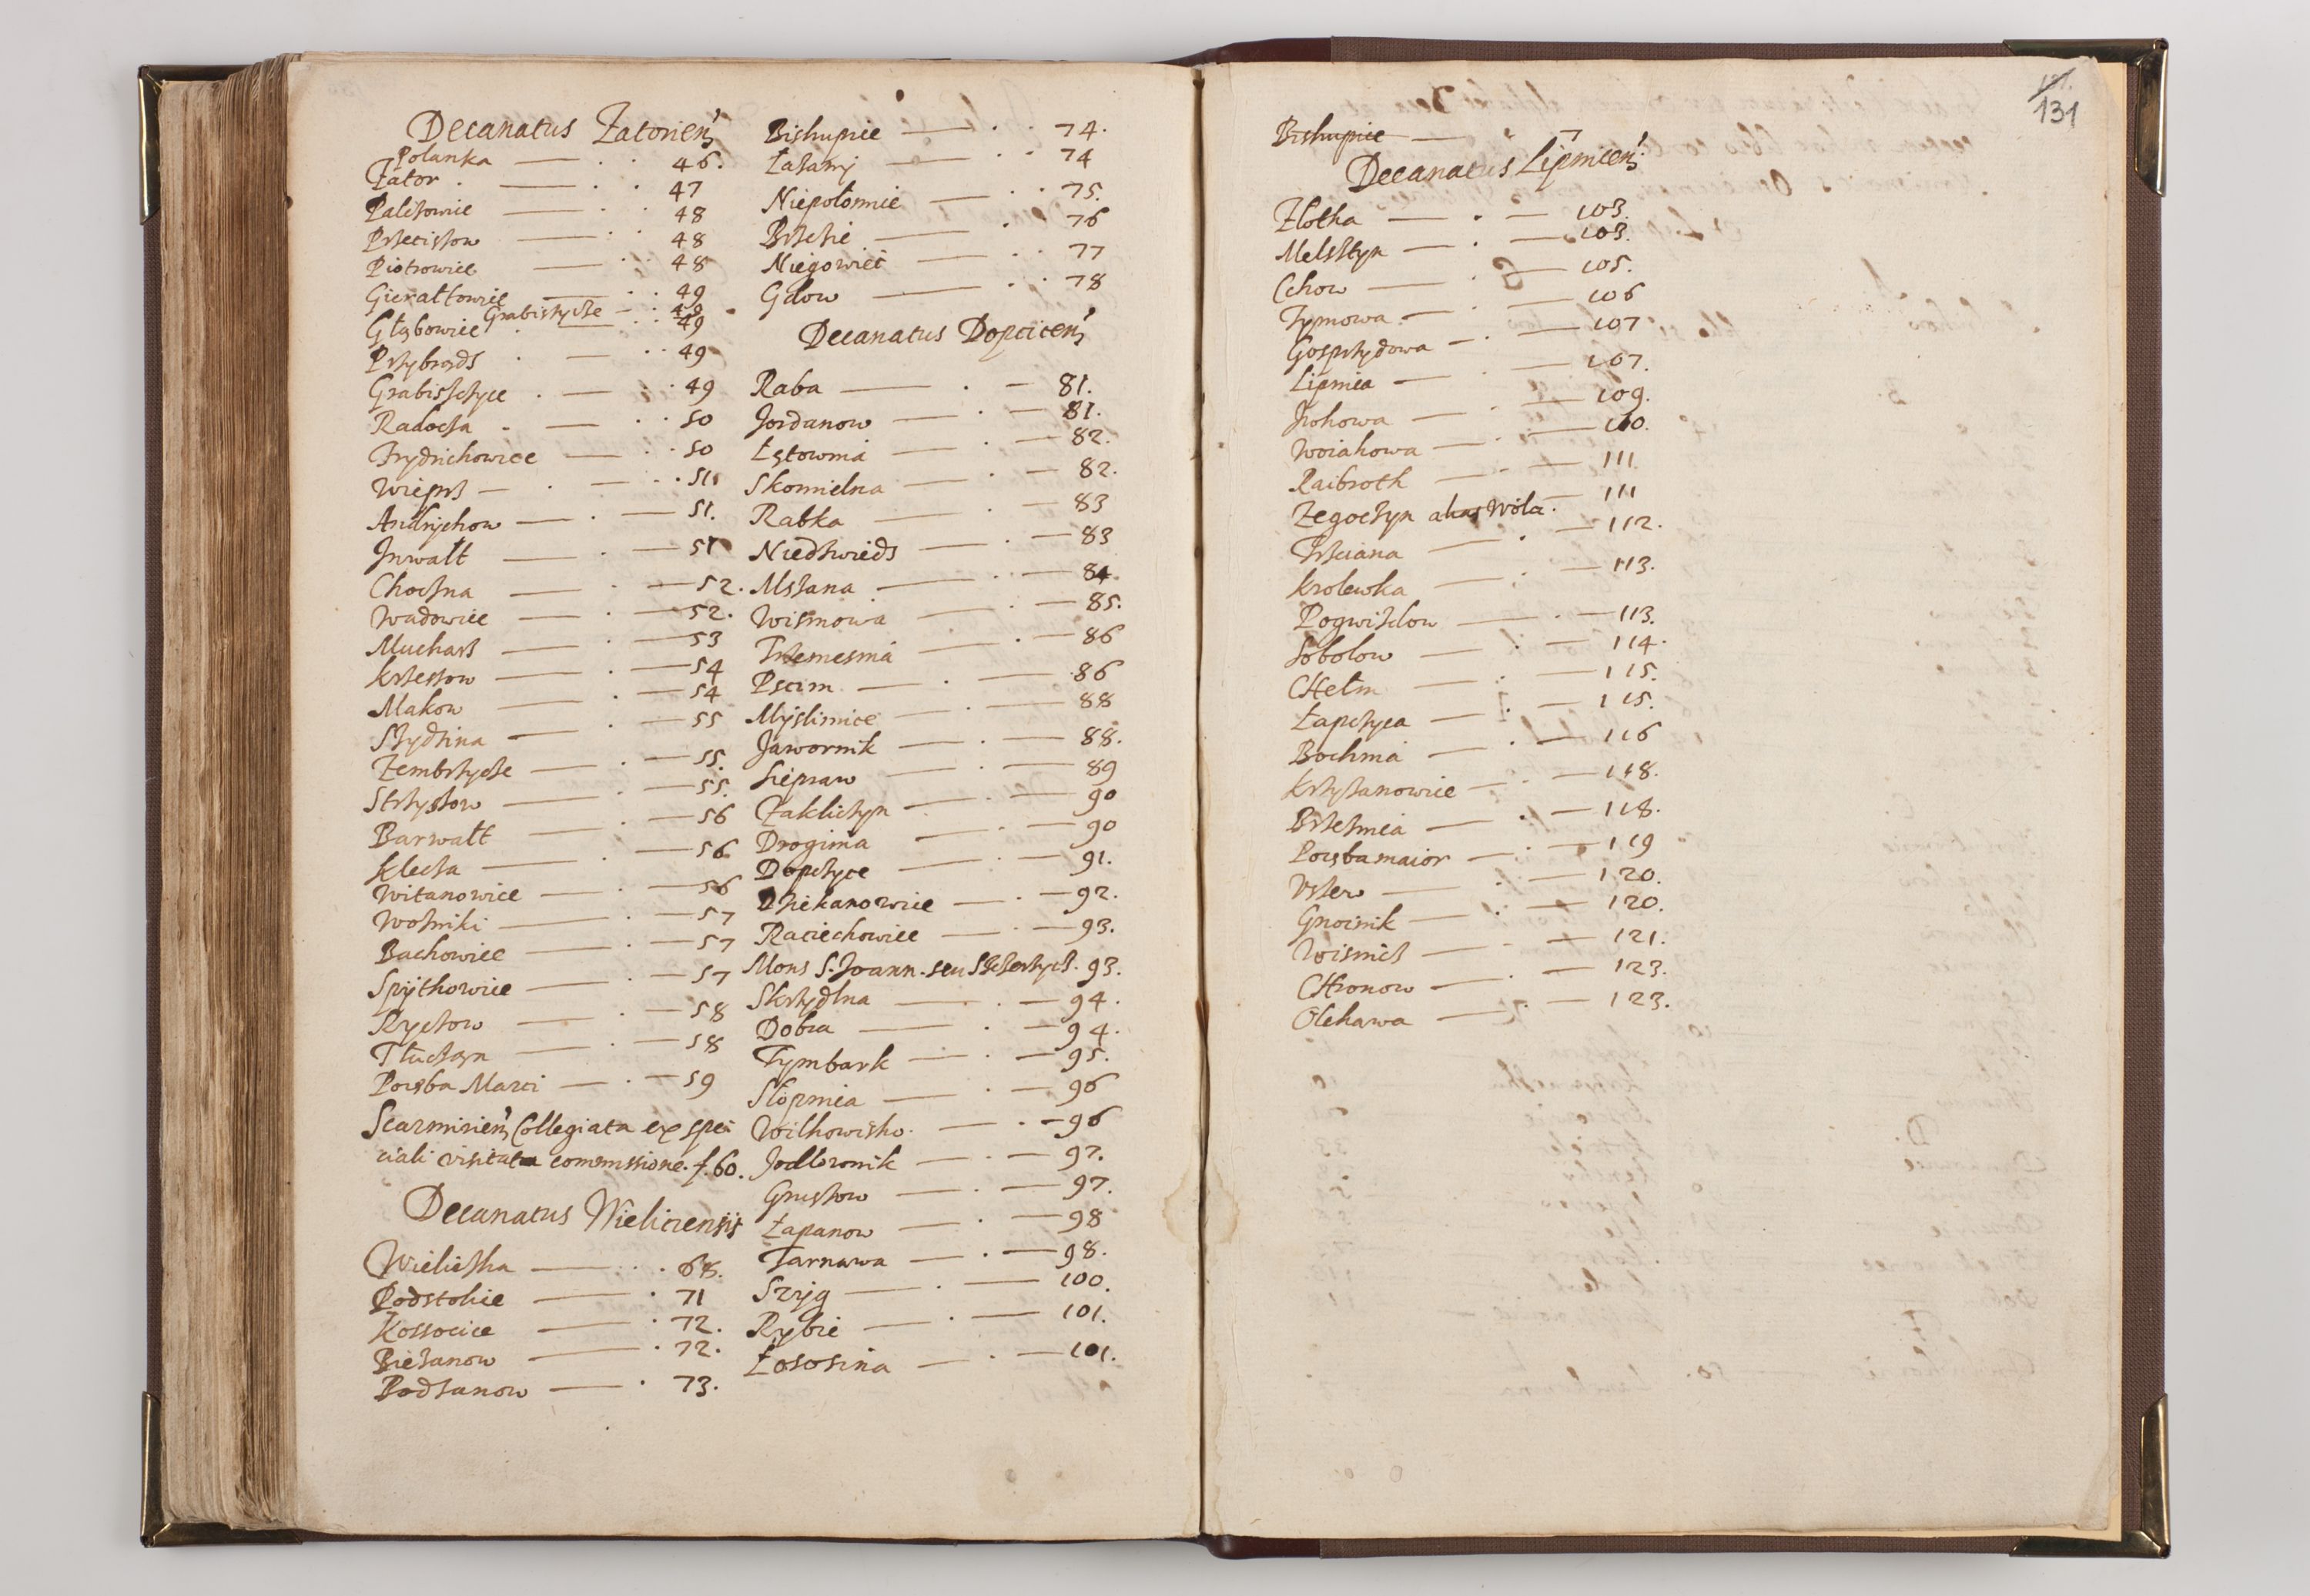 Decanatus Zatorień
Polanka — . . 46.
Zator . — . . 47
Palczowice — . . 48
Przeciszow — . . 48
Piotrowice — . . 48
Gierałtowice — . . 49
Grabiszycze — . 49
Głębowice . — . . 49
Przybrads . — . . 49
Grabiszczyce . — . . 49
Radocza . — . . 50
Frydrichowice — . . 50
Wieprz — . — . . 51
Andrychow — . — 51.
Inwałt — . — 51
Choczna — . — 52.
Wadowice — . — 52.
Mucharz — . — 53
Krzeszow — . — 54
Makow — . — 54
Szydzina — . — 55
Zembrzycze — . — 55.
Stryszow — . — 55.
Barwałt — . — 56
Klecza — . — 56
Witanowice — . — 56
Woźniki — . — 57
Bachowice — . — 57
Spythowice — . — 57
Ryczow — . — 58
Tłuczan — . — 58
Poręba Marci — . — 59
Scarmirień Collegiata ex spe
ciali visitata commissione. f. 60.
Decanatus Wieliciensis
Wieliczka — . . 68.
Podstolice — . 71
Kossocice — . 72.
Bieżanow — . 72.
Bodzanow — . 73.
Biskupice — . . 74.
Łazany — . . 74
Niepołomice — . . 75.
Brzezie — . 76
Niegowić — . . 77
Gdow — . . 78
Decanatus Dopciceń
Raba — . — 81.
Jordanow — . — 81.
Łętownia — . — 82.
Skomielna — . — 82.
Rabka — . — 83
Niedzwieds — . — 83
Mszana — . — 84
Wisniowa — . — 85.
Trzemesnia — . — 86
Pscim — . — 86
Myslimice — . — 88
Jawornik — . — 88.
Siepraw — . — 89
Zakliczyn — . — 90
Droginia — . — 90
Dopczyce — . — 91.
Dziekanowice — . — 92.
Raciechowice — . — 93.
Mons S. Joann. seu Szczerzycz. 93.
Skrzydlna — . — 94.
Dobra — . — 94.
Tymbark — . — 95.
Słopnica — . — 96
Wilkowisko. — . — 96
Jodłownik — . — 97.
Gruszow — . — 97.
Łapanow — . — 98
Tarnawa — . — 98.
Szyg — . — 100.
Rybie — . — 101.
Łososina — . — 101.
131
Biskupice —
Decanatus Lipnicen:
Zlotha — . — 103.
Melsztyn — . — 103.
Cchow — . — 105.
Tymowa — . — 106
Gosprzydowa — . — 107
Lipnica — . — 107.
Iwkowa — . — 109.
Woiakowa — . — 110.
Raibroth — . — 111
Zegoczyn alias Wola. — 111
Trzciana — . — 112.
Krolewka — . — 113.
Pogwizdow — . — 113.
Sobolow — . — 114.
CHełm — . — 115.
Łapczyca — . — 115.
Bochnia — . — 116
Krzyżanowice — . — 118.
Brzeźnica — . — 118.
Poręba maior — . — 119
Vszew — . — 120.
Gnoinik — . — 120.
Wisnicz — . — 121.
CHronow — . — 123.
Olchawa — . — 123.